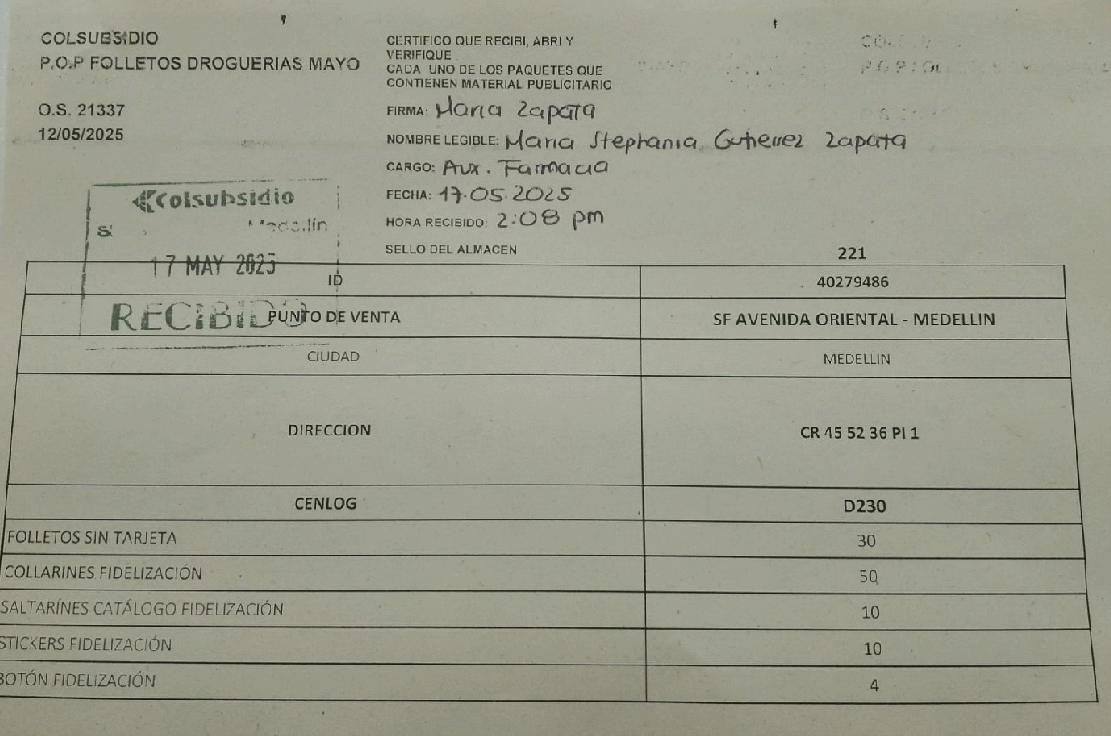 COLSUBSIDIO
P.O.P FOLLETOS DROGUERIAS MAYO
O.S. 21337
12/05/2025
CERTIFICO QUE RECIBI, ABRI Y
VERIFIQUE
CADA UNO DE LOS PAQUETES QUE
CONTIENEN MATERIAL PUBLICITARIO
FIRMA: Maria Zapata
NOMBRE LEGIBLE: Maria Stephania Gutierrez Zapata
CARGO: Aux. Farmacia
FECHA: 17.05.2025
HORA RECIBIDO: 2:08 pm
SELLO DEL ALMACEN
Colsubsidio
Medellín
17 MAY 2025
RECIBIDO
221
ID 40279486
PUNTO DE VENTA SF AVENIDA ORIENTAL - MEDELLIN
CIUDAD MEDELLIN
DIRECCION CR 45 52 36 PI 1
CENLOG D230
FOLLETOS SIN TARJETA 30
COLLARINES FIDELIZACIÓN 50
SALTARÍNES CATÁLOGO FIDELIZACIÓN 10
STICKERS FIDELIZACIÓN 10
BOTÓN FIDELIZACIÓN 4